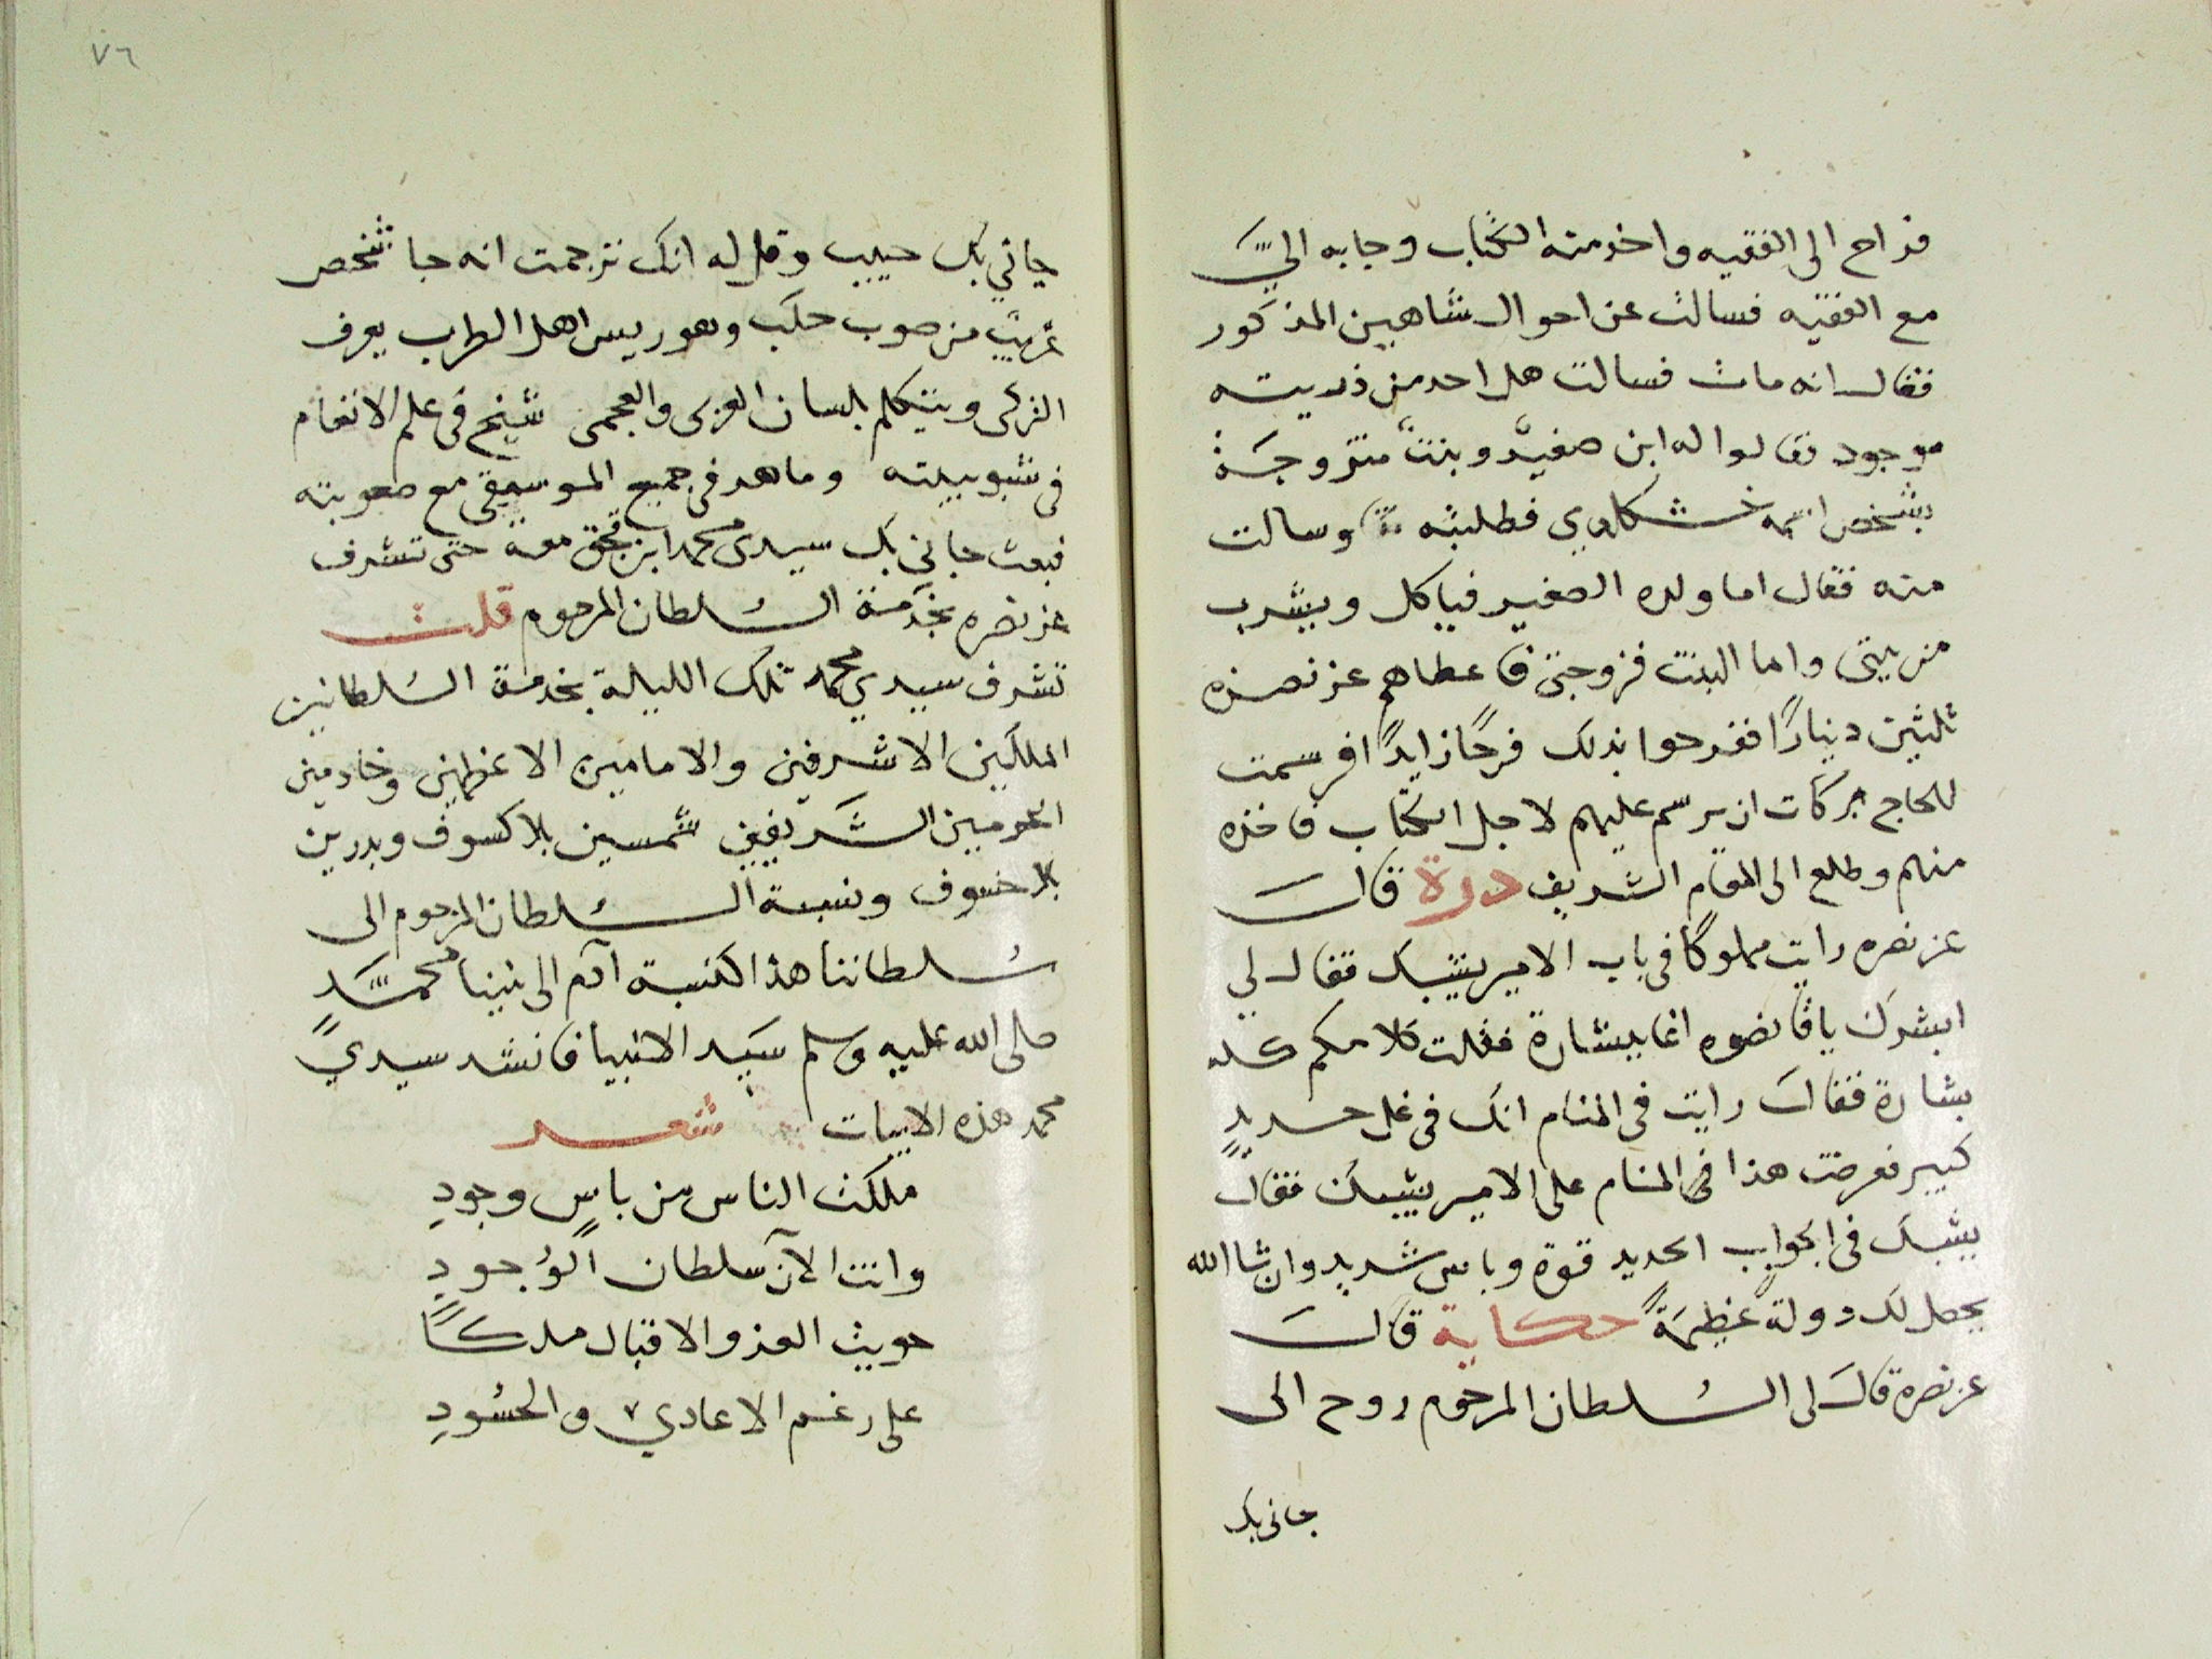 فراح الى الفقيه واخذ منه الكتاب وجابه اليَّ
مع الفقيه فسالت عن احوال شاهين المذكور
فقال انه مات فسالت هل احد من ذريته
موجود فقالوا له ابن صغير وبنت متزوجة
بشخص اسمه خشكلدي فطلبته وسالت
منه فقال اما ولده الصغير فياكل ويشرب
من بيتى واما البنت فزوجتى فاعطاهم عز نصره
ثلثين دينارًا ففرحوا بذلك فرحًا زايدًا فرسمت
للحاج بركات ان يرسم عليهم لاجل الكتاب فاخذه
منهم وطلع الى المقام الشريف درة قال
عز نصره رايت مملوكًا فى باب الامير يشبك فقال لي
ابشرك يا قانصوه اغا ببشارة فقلت كلامكم كله
بشارة فقال رايت فى المنام انك فى غل حديدٍ
كبير فعرضت هذا فى المنام على الامير يشبك فقال
يشبك فى الجواب الحديد قوة وباس شديد وان شا الله
يحصل لك دولة عظيمةً حكاية قال
عز نصره قال لى السُلطان المرحوم روح الى
جانى بك
٧٦
جاني بك حبيب وقل له انك ترجمت انه جا شخص
غريب من صوب حلب وهو ريس اهل الطرب يعرف
التركى ويتكلم بلسان العربى والعجمى شيخ فى علم الانغام
فى شبوبيته وماهر فى جميع الموسيقى مع صعوبته
فبعث جانى بك سيدى محمد ابن قجق معه حتى تشرف
عز نصره بخدمة السُلطان المرحوم قلت
تشرف سيدي محمد تلك الليلة بخدمة السُلطانين
الملكين الاشرفين والامامين الاعظمين وخادمين
الحرمين الشَريفين شمسين بلا كسوف وبدرين
بلا خسوف ونسبة السُلطان المرحوم الى
سُلطاننا هذا كنسبة آدم الى نبينا محمَّدٍ
صلى الله عليه وسلم سيَد الانبيا فانشد سيدي
محمد هذه الابيات شعر
ملكت الناس من باسٍ وجودِ
وانت الآن سلطان الوُجودِ
حويت العز والاقبال ملكًا
على رغم الاعادي والحسُودِ